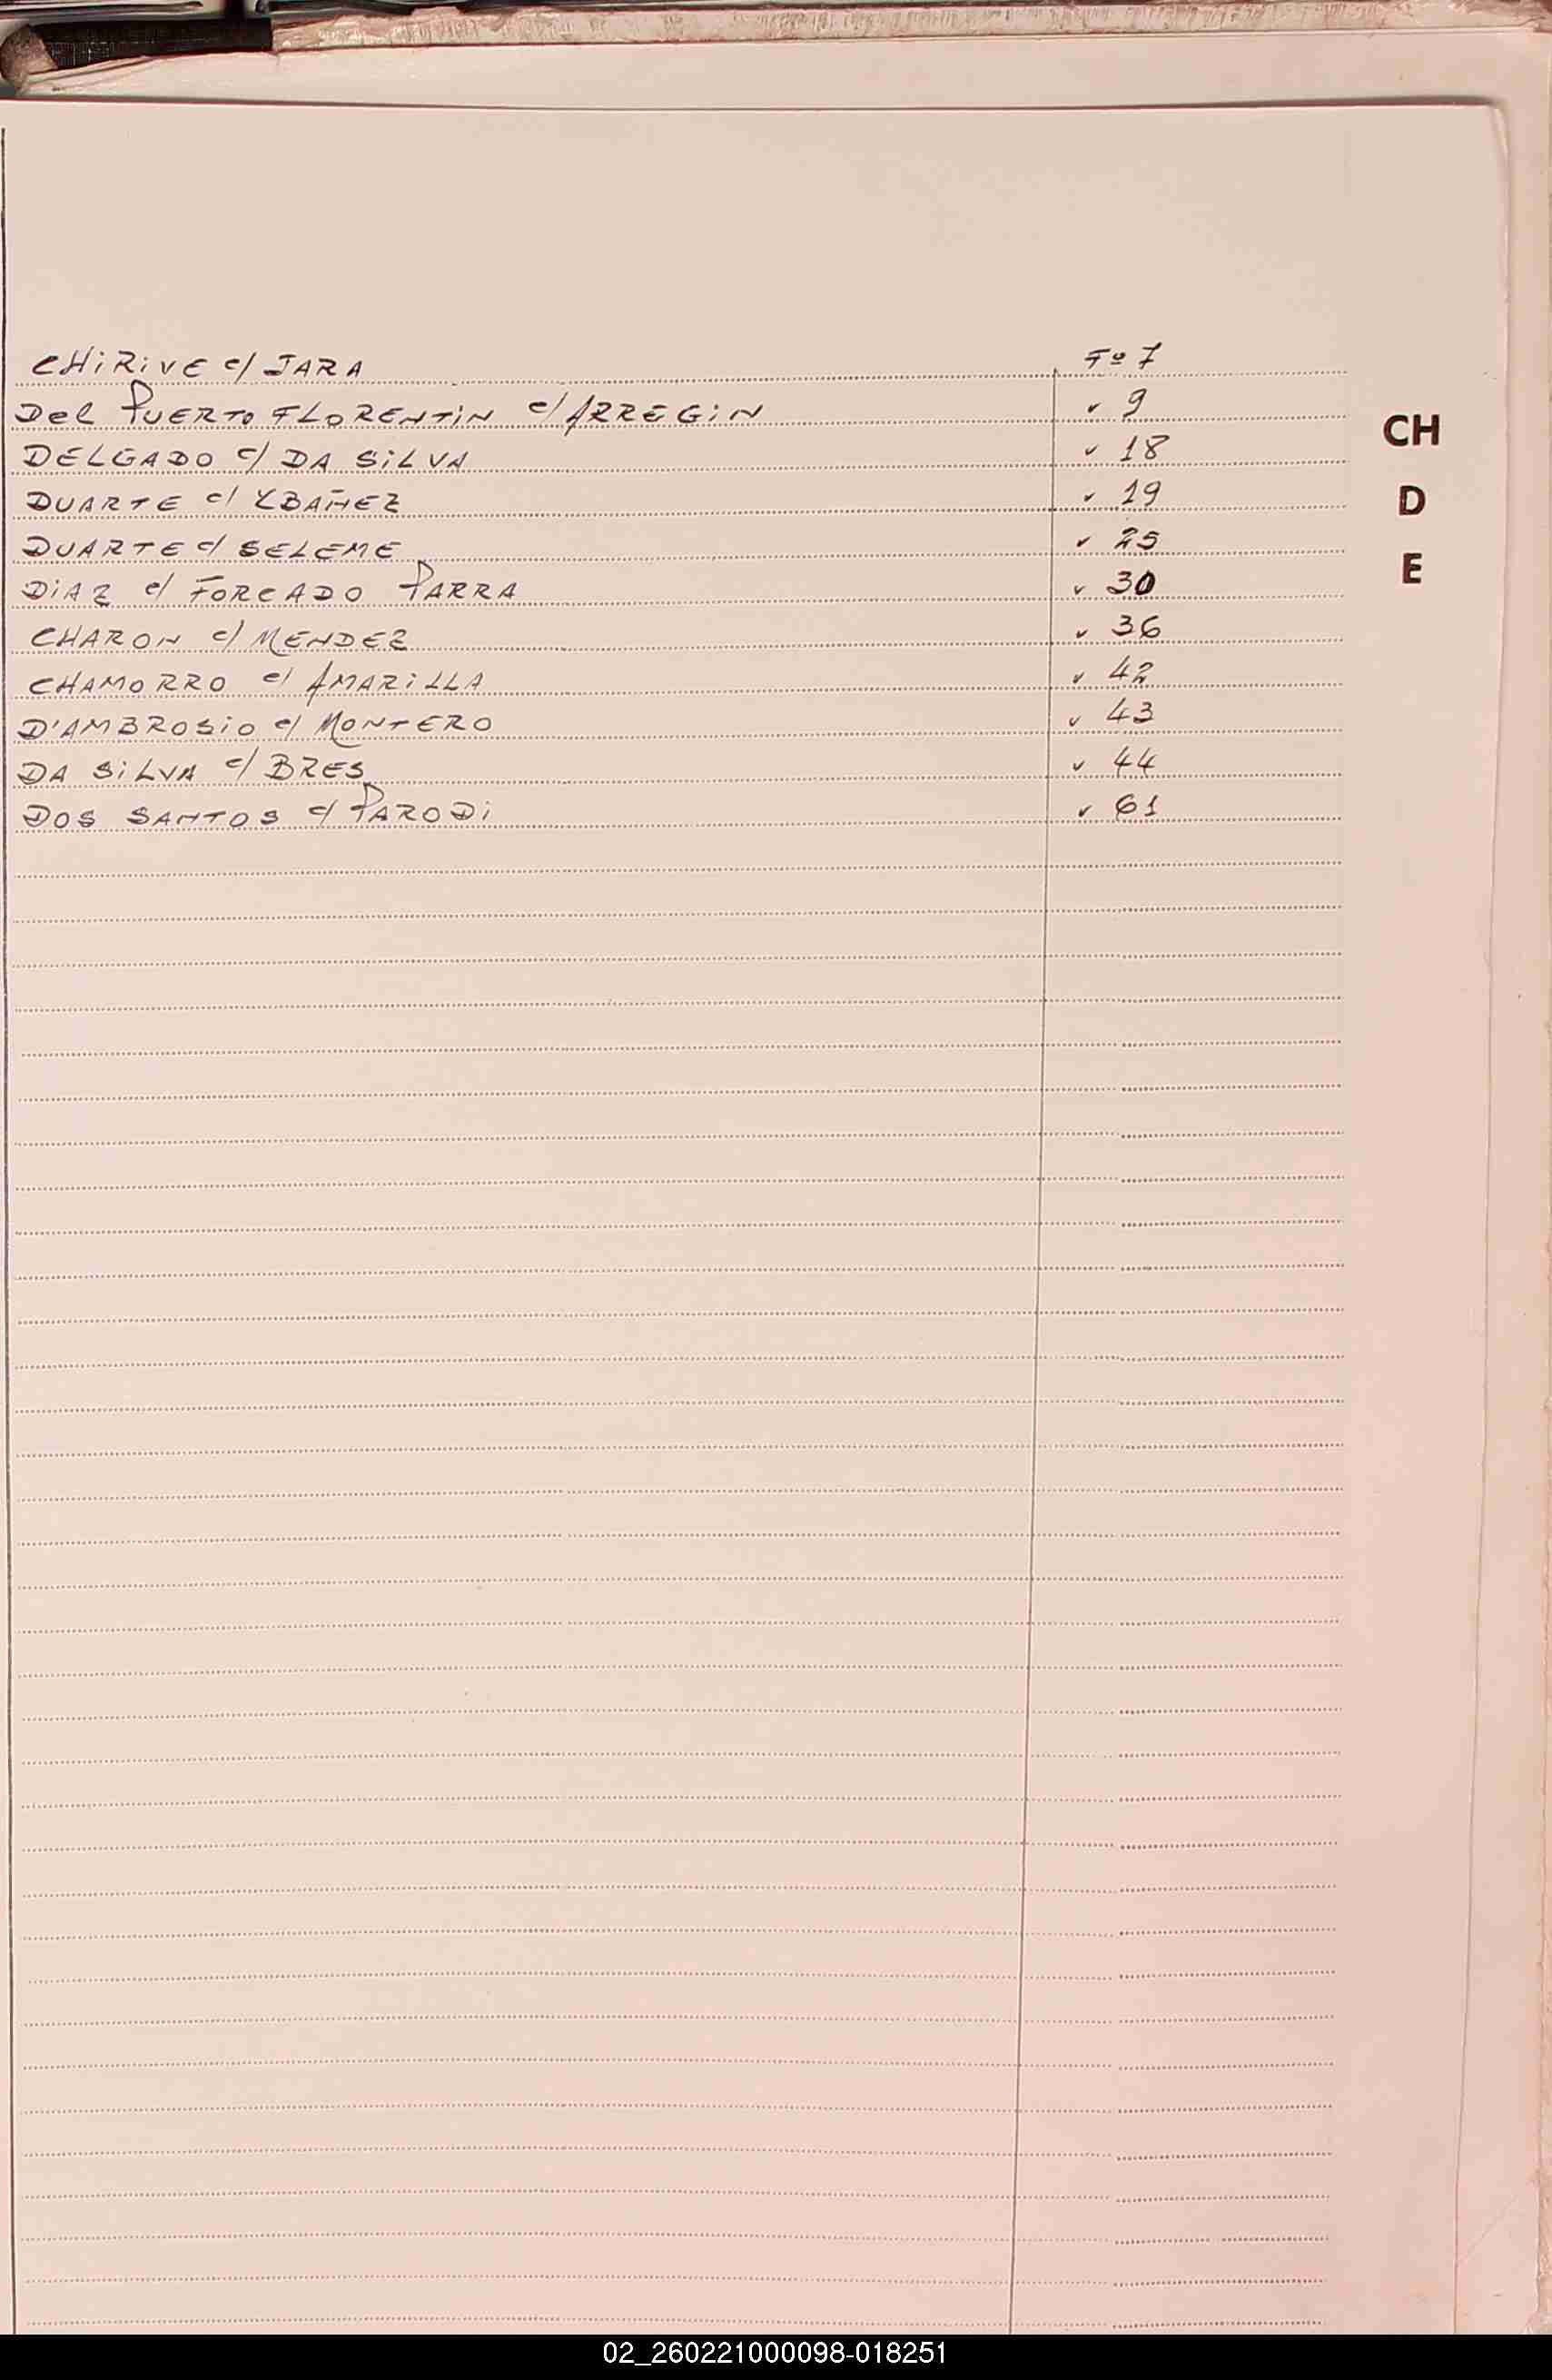 CHiRiVE c/ JARA Fº 7
Del PUERTO FLORENTiN c/ ARREGiN " 9
DELGADO c/ DA SiLVA " 18
DUARTE c/ YBAÑEZ " 19
DUARTE c/ SELEME " 25
DiAZ c/ FORCADO PARRA " 30
CHARON c/ MENDEZ " 36
CHAMORRO c/ AMARiLLA " 42
D'AMBROSiO c/ MONTERO " 43
DA SiLVA c/ BRES " 44
DOS SANTOS c/ PARODi " 61
CH
D
E
02_260221000098-018251